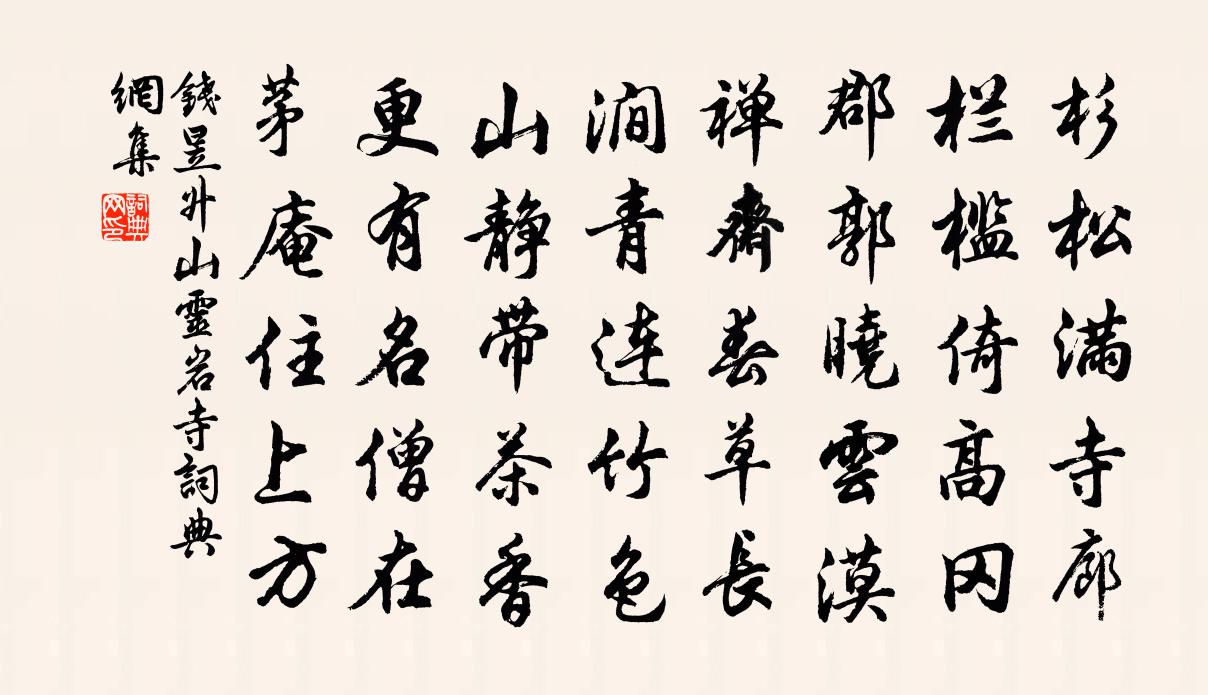 杉松满寺廊
栏槛倚高冈
郡郭曉雲漠
禅齋春草長
澗青連竹色
山静带茶香
更有名僧在
茅庵住上方
錢昱升山靈岩寺詞典
網集
詞典网印